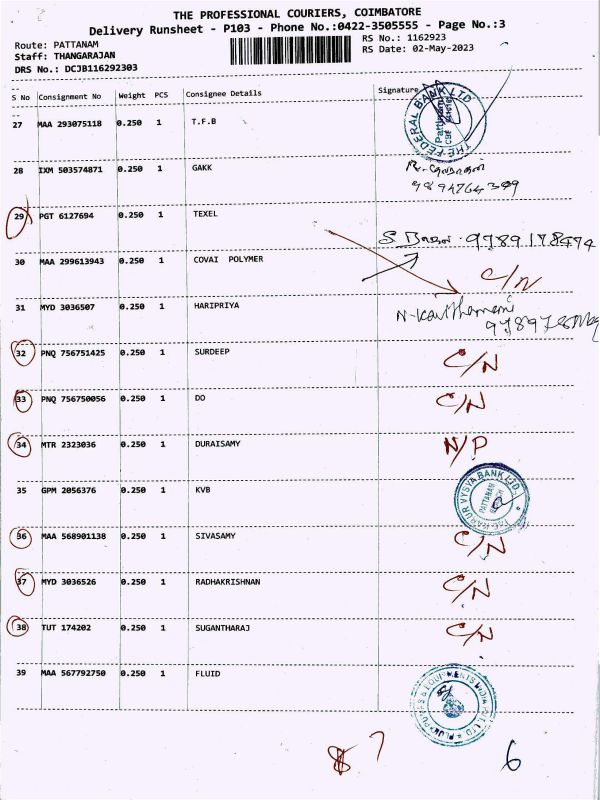 THE PROFESSIONAL COURIERS, COIMBATORE
Delivery Runsheet - P103 - Phone No.:0422-3505555 - Page No.:3
Route: PATTANAM
RS No.: 1162923
Staff: THANGARAJAN
RS Date: 02-May-2023
DRS No.: DCJB116292303
S No Consignment No Weight PCS Consignee Details Signature
27 MAA 293075118 0.250 1 T.F.B
THE FEDERAL BANK LTD
28 IXM 503574871 0.250 1 GAKK
29 PGT 6127694 0.250 1 TEXEL
9789178474
30 MAA 299613943 0.250 1 COVAI POLYMER
C/N
31 MYD 3036507 0.250 1 HARIPRIYA
32 PNQ 756751425 0.250 1 SURDEEP C/N
33 PNQ 756750056 0.250 1 DO C/N
34 MTR 2323036 0.250 1 DURAISAMY N/P
35 GPM 2056376 0.250 1 KVB
THE KARUR VYSYA BANK LTD.
PATTANAM
BRANCH
36 MAA 568901138 0.250 1 SIVASAMY C/N
37 MYD 3036526 0.250 1 RADHAKRISHNAN C/N
38 TUT 174202 0.250 1 SUGANTHARAJ C/N
39 MAA 567792750 0.250 1 FLUID
7
6